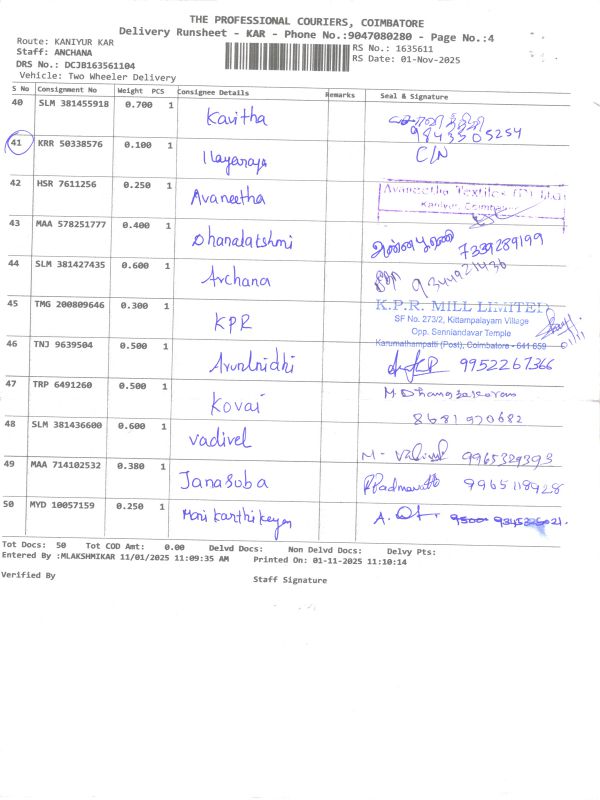 THE PROFESSIONAL COURIERS, COIMBATORE
Delivery Runsheet - KAR - Phone No.:9047080280 - Page No.:4
Route: KANIYUR KAR
RS No.: 1635611
Staff: ANCHANA
RS Date: 01-Nov-2025
DRS No.: DCJB163561104
Vehicle: Two Wheeler Delivery
S No Consignment No Weight PCS Consignee Details Remarks Seal & Signature
40 SLM 381455918 0.700 1 Kavitha
9843505254
41 KRR 50338576 0.100 1 Ilayaraja C/N
42 HSR 7611256 0.250 1 Avaneetha Avaneetha Textiles (P) Ltd
Kaniyur, Coimbatore
43 MAA 578251777 0.400 1 Dhanalatshmi 7339289199
44 SLM 381427435 0.600 1 Archana 9344921436
45 TMG 200809646 0.300 1 KPR K.P.R. MILL LIMITED
SF No. 273/2, Kittampalayam Village
Opp. Sanniandavar Temple
Karumathampatti (Post), Coimbatore - 641 659
01/11
46 TNJ 9639504 0.500 1 Arunlnidhi 9952267366
47 TRP 6491260 0.500 1 Kovai M Dhanabaskaran
8681920682
48 SLM 381436600 0.600 1 vadivel M - Vadivel 9965329393
49 MAA 714102532 0.380 1 Janasuba Padmavathi 9965118928
50 MYD 10057159 0.250 1 Mani karthikeyan A.
Tot Docs: 50 Tot COD Amt: 0.00 Delvd Docs: Non Delvd Docs: Delvy Pts:
Entered By :MLAKSHMIKAR 11/01/2025 11:09:35 AM Printed On: 01-11-2025 11:10:14
Verified By
Staff Signature